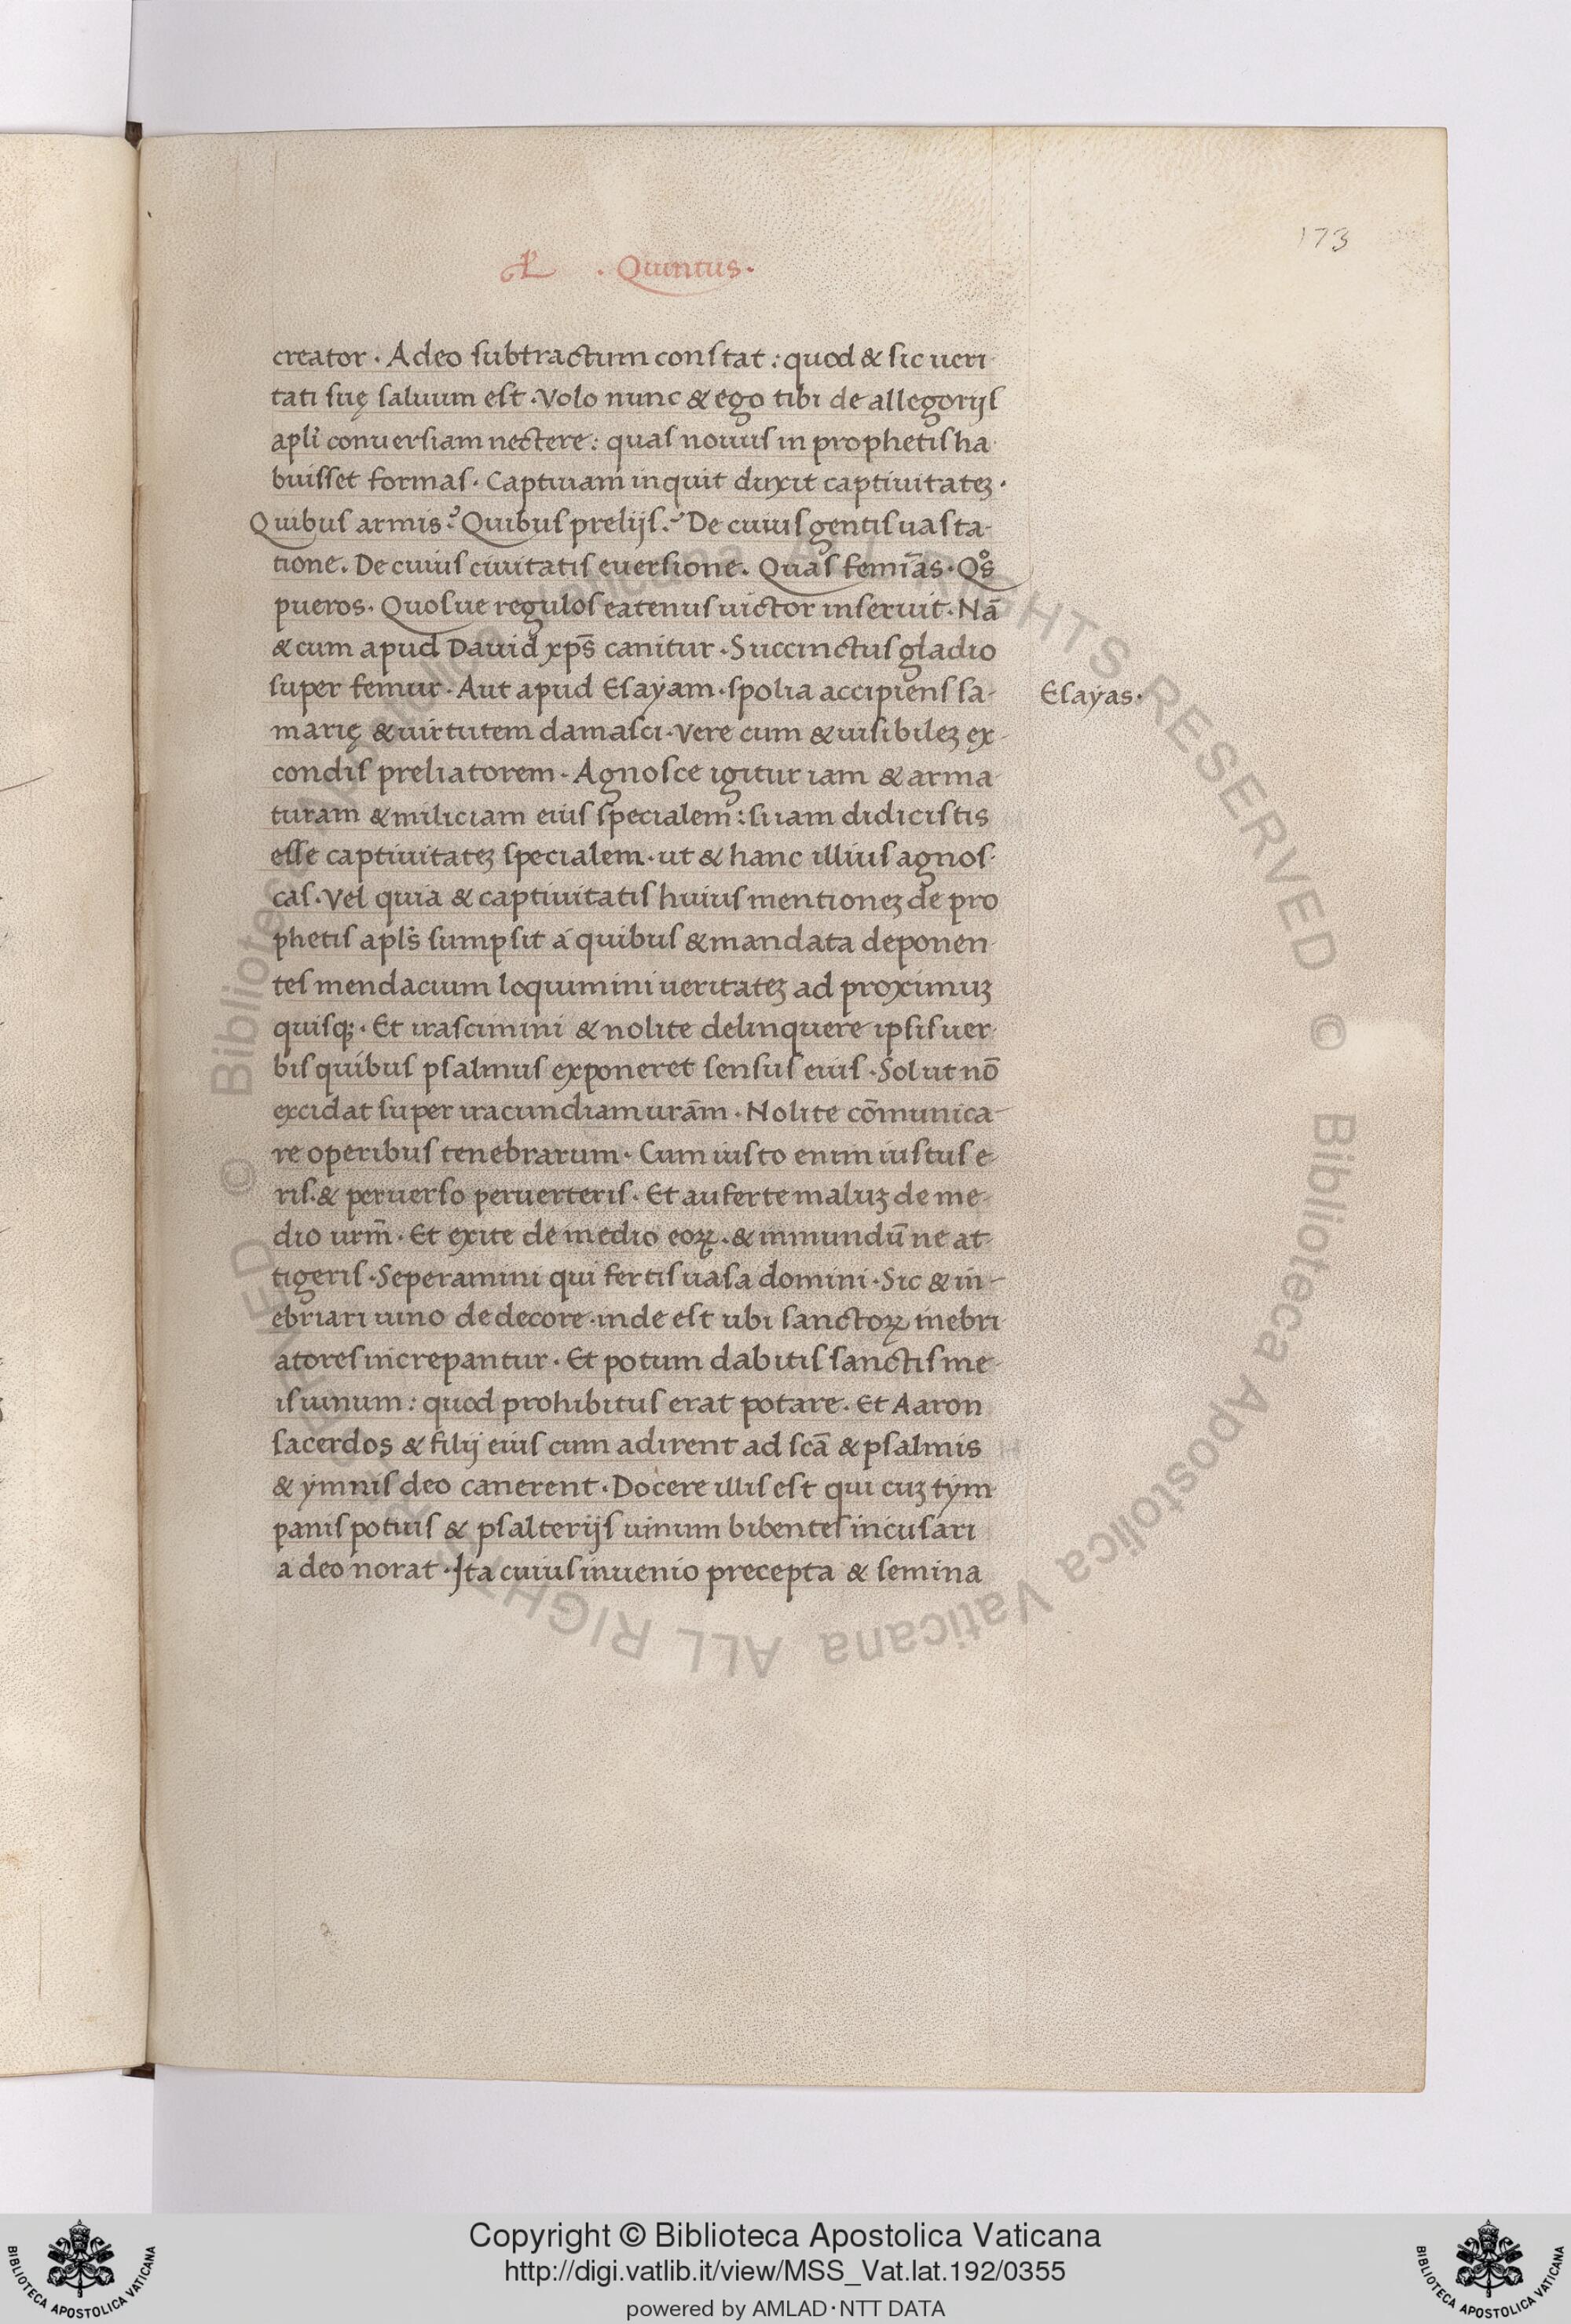 173
· Quintus ·
creator · A deo subtractum constat : quod & sic ueri-
tati suę saluum est · Volo nunc & ego tibi de allegorijs
apłi conuersiam nectere : quas nouus in prophetis ha-
buisset formas · Captiuam inquit duxit captiuitateꝫ ·
Quibus armis? Quibus prelijs? De cuius gentis uasta-
tione. De cuius ciuitatis euersione. Quas femīas · Qͦs
pueros. Quosue regulos eatenus uictor inseruit. Nā
& cum apud Dauid xp̄s canitur · Succinctus gladio
super femur · Aut apud Esaẏam · spolia accipiens sa-
Esaẏas·
marię & uirtutem damasci · Vere cum & uisibileꝫ ex-
condis preliatorem · Agnosce igitur iam & arma-
turam & miliciam eius specialem : si iam didicistis
esse captiuitateꝫ specialem · ut & hanc illius agnos-
cas. Vel quia & captiuitatis huius mentioneꝫ de pro
phetis apl̄s sumpsit á quibus & mandata deponen-
tes mendacium loquimini ueritateꝫ ad proximuꝫ
quisqꝫ · Et irascimini & nolite delinquere ipsis uer-
bis quibus psalmus exponeret sensus eius · Sol ut nō
excidat super iracundiam urām · Nolite cōmunica-
re operibus tenebrarum · Cum iusto enim iustus e-
ris · & peruerso peruerteris · Et auferte maluꝫ de me-
dio urm̄ · Et exite de medio eoꝝ · & inmundū ne at-
tigeris · Seperamini qui fertis uasa domini · Sic & in-
ebriari uino dedecore · inde est ubi sanctoꝝ inebri-
atores increpantur · Et potum dabitis sanctis me-
is uinum : quod prohibitus erat potare. Et Aaron
sacerdos & filij eius cum adirent ad scā & psalmis
& ẏmnis deo canerent · Docere illis est qui cuꝫ tẏm-
panis potius & psalterijs uinum bibentes incusari
a deo norat · Ita cuius inuenio precepta & semina
© Biblioteca Apostolica Vaticana ALL RIGHTS RESERVED © Biblioteca Apostolica Vaticana ALL RIGHTS RESERVED
BIBLIOTECA APOSTOLICA VATICANA
Copyright © Biblioteca Apostolica Vaticana
http://digi.vatlib.it/view/MSS_Vat.lat.192/0355
powered by AMLAD·NTT DATA
BIBLIOTECA APOSTOLICA VATICANA